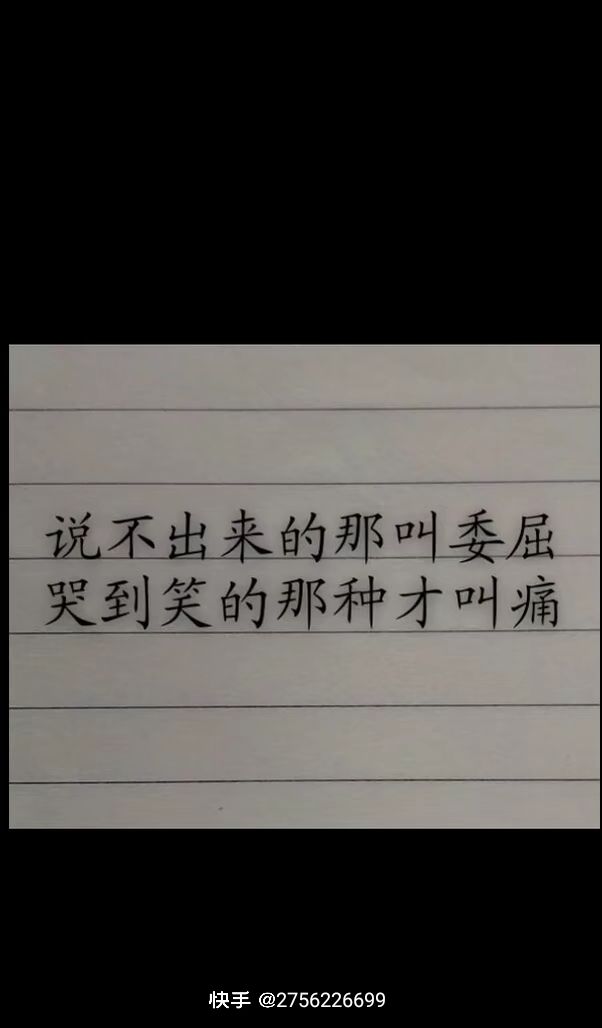 说不出来的那叫委屈
哭到笑的那种才叫痛
快手 @2756226699